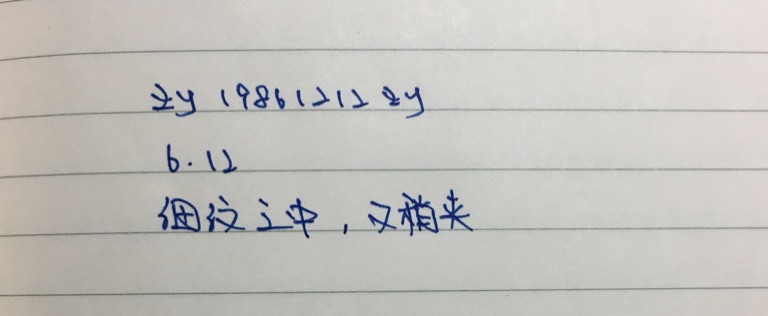 zy 19861212 zy
6.12
细纹之中,又稍夹